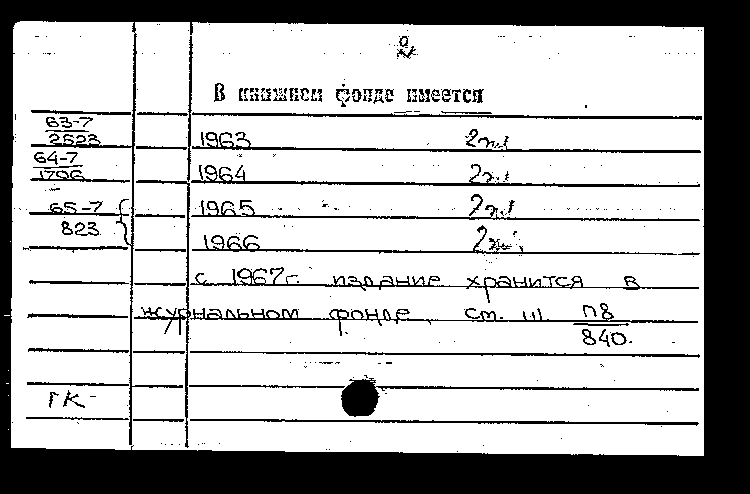 В книжном фонде имеется
63-7
2523 1963 2 экз
64-7
1796 1964 2 экз
65-7 1965 2 экз
823 1966 2 экз.
с 1967г. издание хранится в
журнальном фонде, см. ш. П8
840.
ГК-